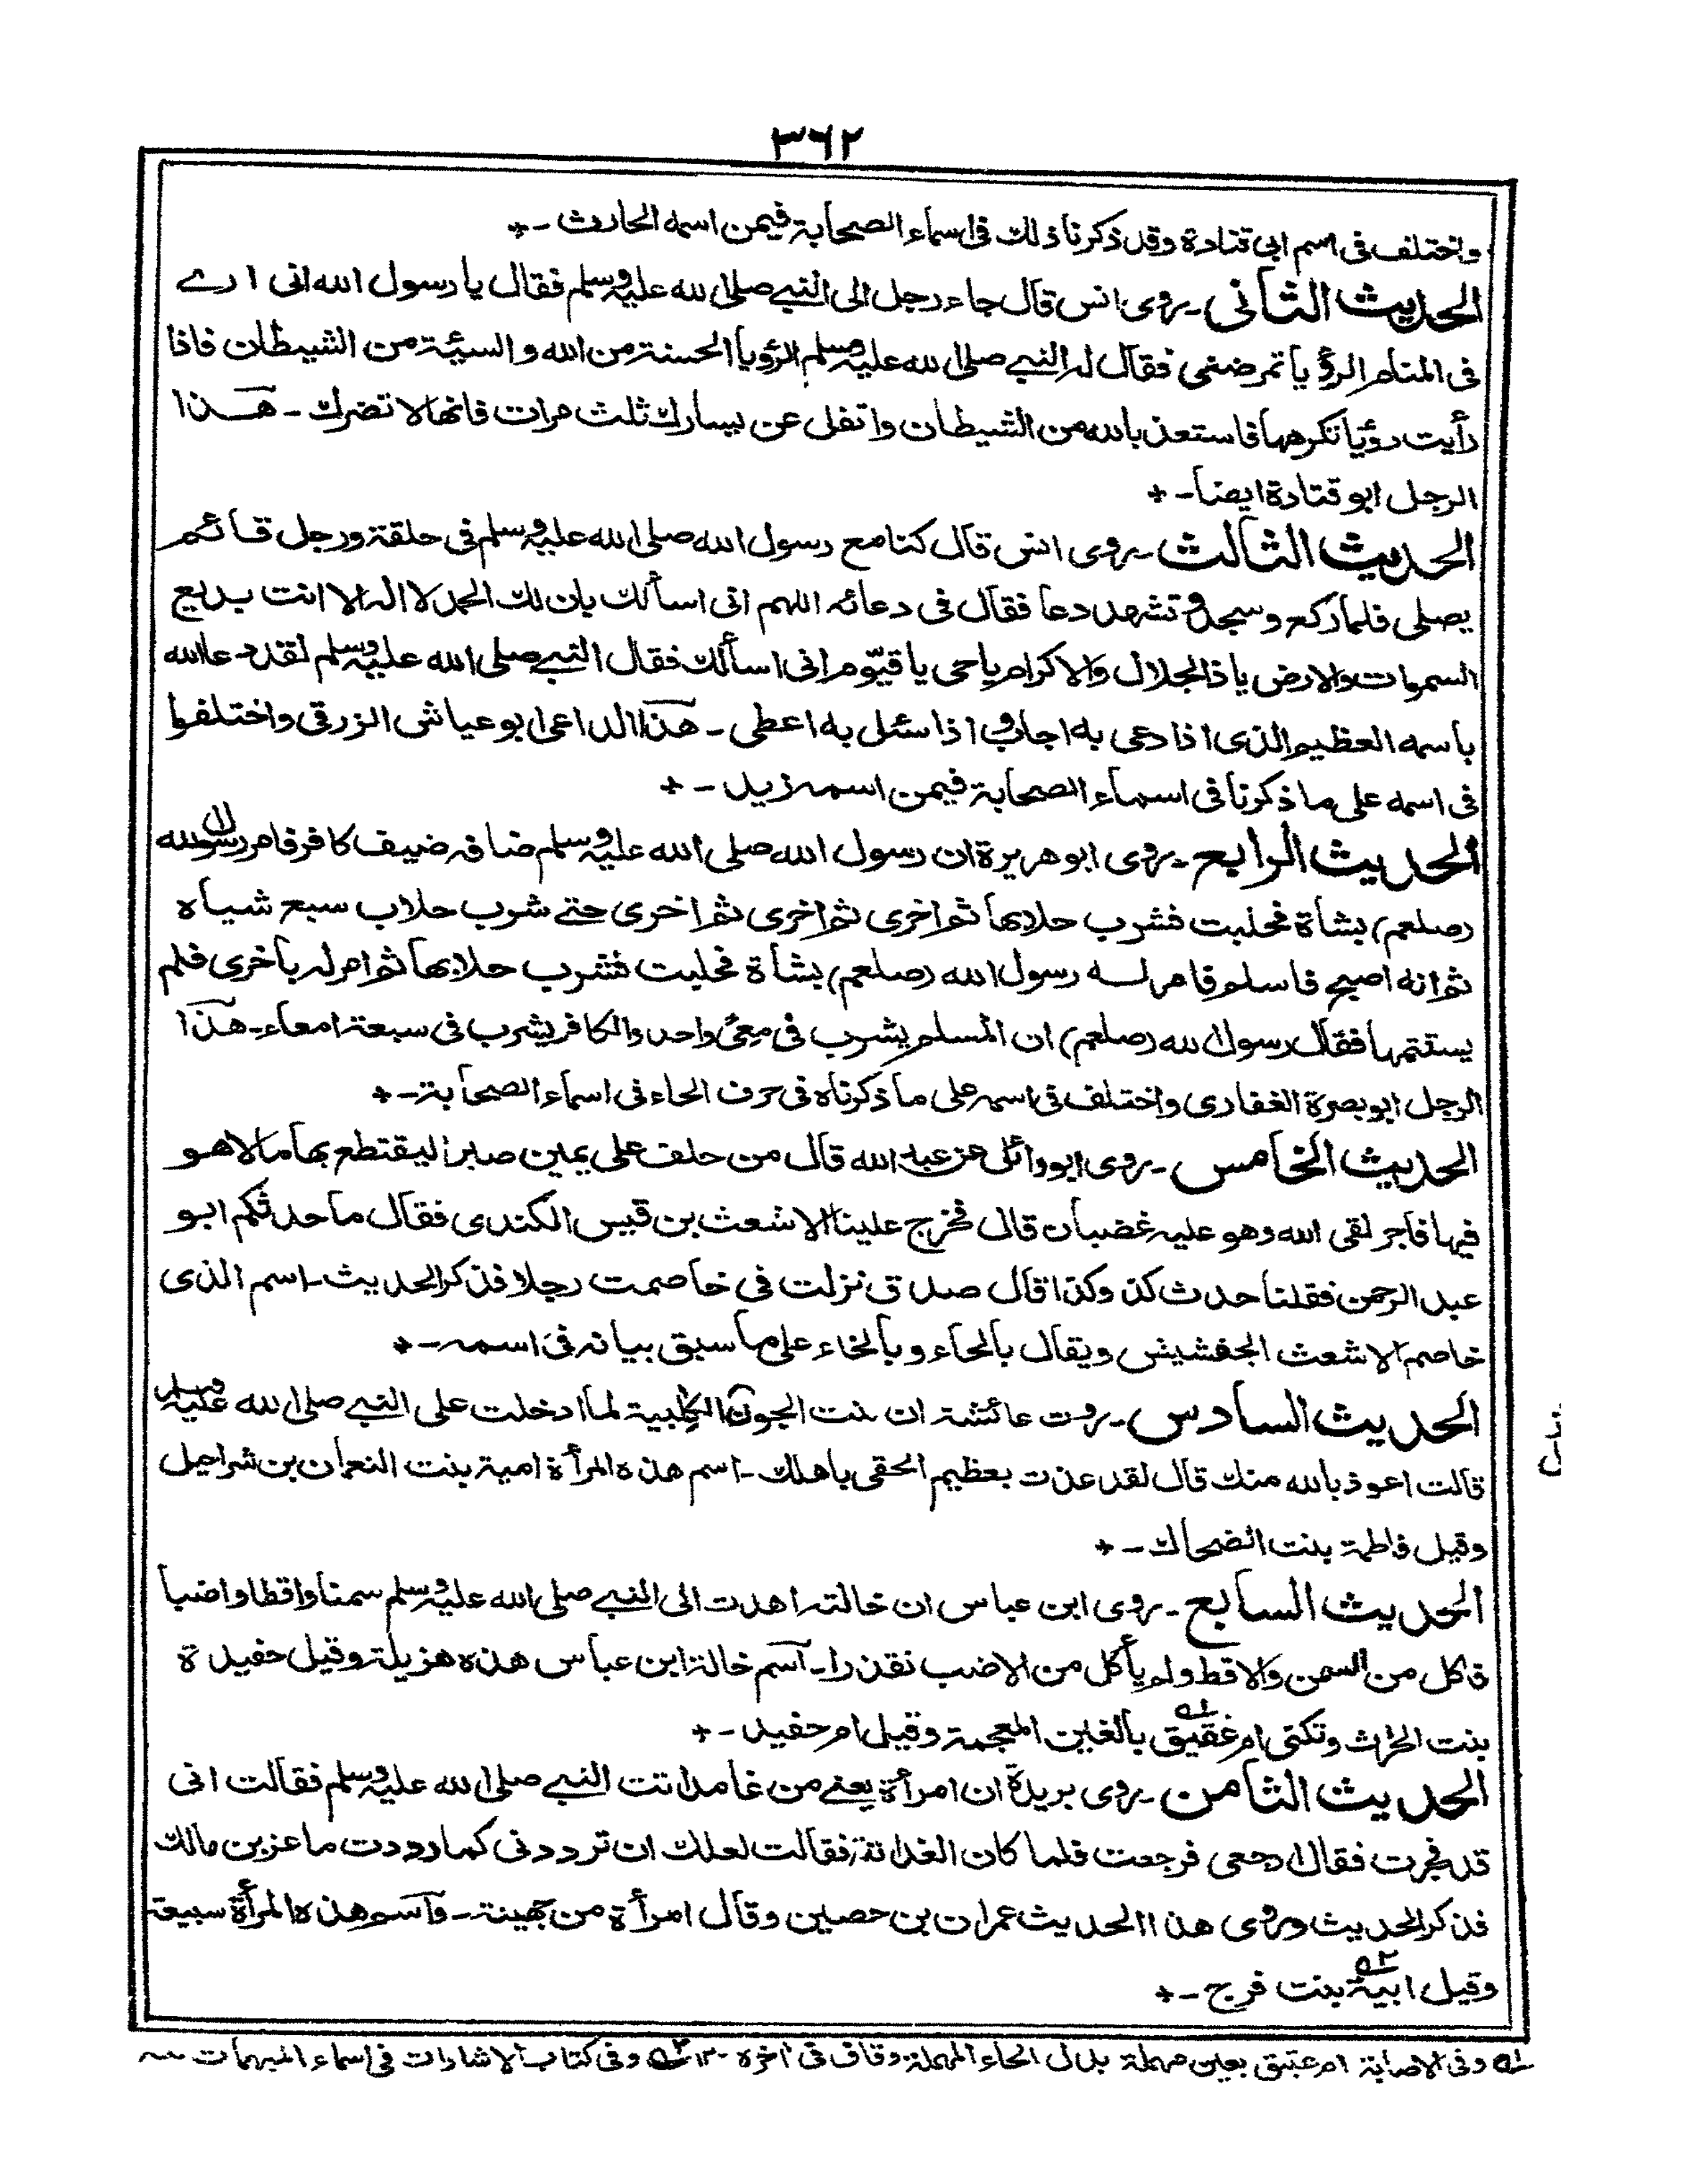 ٣٦٢
واختلف فى اسم ابى قتادة وقد ذكرنا ذلك فى اسماء الصحابة فيمن اسمه الحارث ـ٭
الحديث الثانى ـ روى انس قال جاء رجل الى النبى صلى الله عليه وسلم فقال يا رسول الله انى ارے
فى المنام الرؤيا تمرضنى فقال له النبى صلى الله عليه وسلم الرؤيا الحسنة من الله والسيئة من الشيطان فاذا
رأيت رؤيا تكرهها فاستعذ بالله من الشيطان واتفل عن يسارك ثلث مرات فانها لا تضرك ـ هذا
الرجل ابو قتادة ايضا ـ٭
الحديث الثالث ـ روى انس قال كنا مع رسول الله صلى الله عليه وسلم فى حلقة ورجل قائم
يصلى فلما ركع وسجد وتشهد دعا فقال فى دعائه اللهم انى اسألك بان لك الحمد لا اله الا انت بديع
السموات والارض يا ذا الجلال والاكرام يا حى يا قيّوم انى اسألك فقال النبى صلى الله عليه وسلم لقد دعا الله
باسمه العظيم الذى اذا دعى به اجاب واذا سئل به اعطى ـ هذا الداعى ابو عياش الزرقى واختلفوا
فى اسمه على ما ذكرنا فى اسماء الصحابة فيمن اسمه زيد ـ٭
الحديث الرابع ـ روى ابو هريرة ان رسول الله صلى الله عليه وسلم ضافه ضيف كافر فامر رسول الله
(صلعم) بشاة فحلبت فشرب حلابها ثم اخرى ثم اخرى ثم اخرى حتے شرب حلاب سبع شياه
ثم انه اصبح فاسلم فامر له رسول الله (صلعم) بشاة فحلبت فشرب حلابها ثم امر له باخرى فلم
يستتمها فقال رسول الله (صلعم) ان المسلم يشرب فى معى واحد والكافر يشرب فى سبعة امعاء ـ هذا
الرجل ابو بصرة الغفارى واختلف فى اسمه على ما ذكرناه فى حرف الحاء فى اسماء الصحابة ـ٭
الحديث الخامس ـ روى ابو وائل عن عبد الله قال من حلف على يمين صابرا ليقتطع بها مالا هو
فيها فاجر لقى الله وهو عليه غضبان قال فخرج علينا الاشعث بن قيس الكندى فقال ما حدثكم ابو
عبد الرحمن فقلنا حدث كذا وكذا قال صدق نزلت فى خاصمت رجلا فذكر الحديث ـ اسم الذى
خاصم الاشعث الجفشيش ويقال بالحاء وبالخاء على ما سبق بيانه فى اسمه ـ٭
الحديث السادس ـ روت عائشة ان بنت الجون الكلبية لما ادخلت على النبى صلى الله عليه وسلم
قالت اعوذ بالله منك قال لقد عذت بعظيم الحقى باهلك ـ اسم هذه المرأة امية بنت النعمان بن شراحيل
وقيل فاطمة بنت الضحاك ـ٭
الحديث السابع ـ روى ابن عباس ان خالته اهدت الى النبى صلى الله عليه وسلم سمنا واقطا واضبا
فاكل من السمن والاقط ولم يأكل من الاضب تقذرا ـ اسم خالة ابن عباس هذه هزيلة وقيل حفيدة
بنت الحارث وتكنى ام غقيق ١ه بالغين المعجمة وقيل ام حفيد ـ٭
الحديث الثامن ـ روى بريدة ان امرأة يعنے من غامد اتت النبى صلى الله عليه وسلم فقالت انى
قد فجرت فقال ارجعى فرجعت فلما كان الغد اتته فقالت لعلك ان ترددنى كما رددت ماعز بن مالك
فذكر الحديث وروى هذا الحديث عمران بن حصين وقال امرأة من جهينة ـ واسم هذه المرأة سبيعة
وقيل ابية ٢ه بنت فرج ـ٭
١ه وفى الاصابة ام عتيق بعين مهملة بدل الحاء المهملة وقاف فى آخره ـ١٢ ٢ه وفى كتاب الاشارات فى اسماء المبهمات